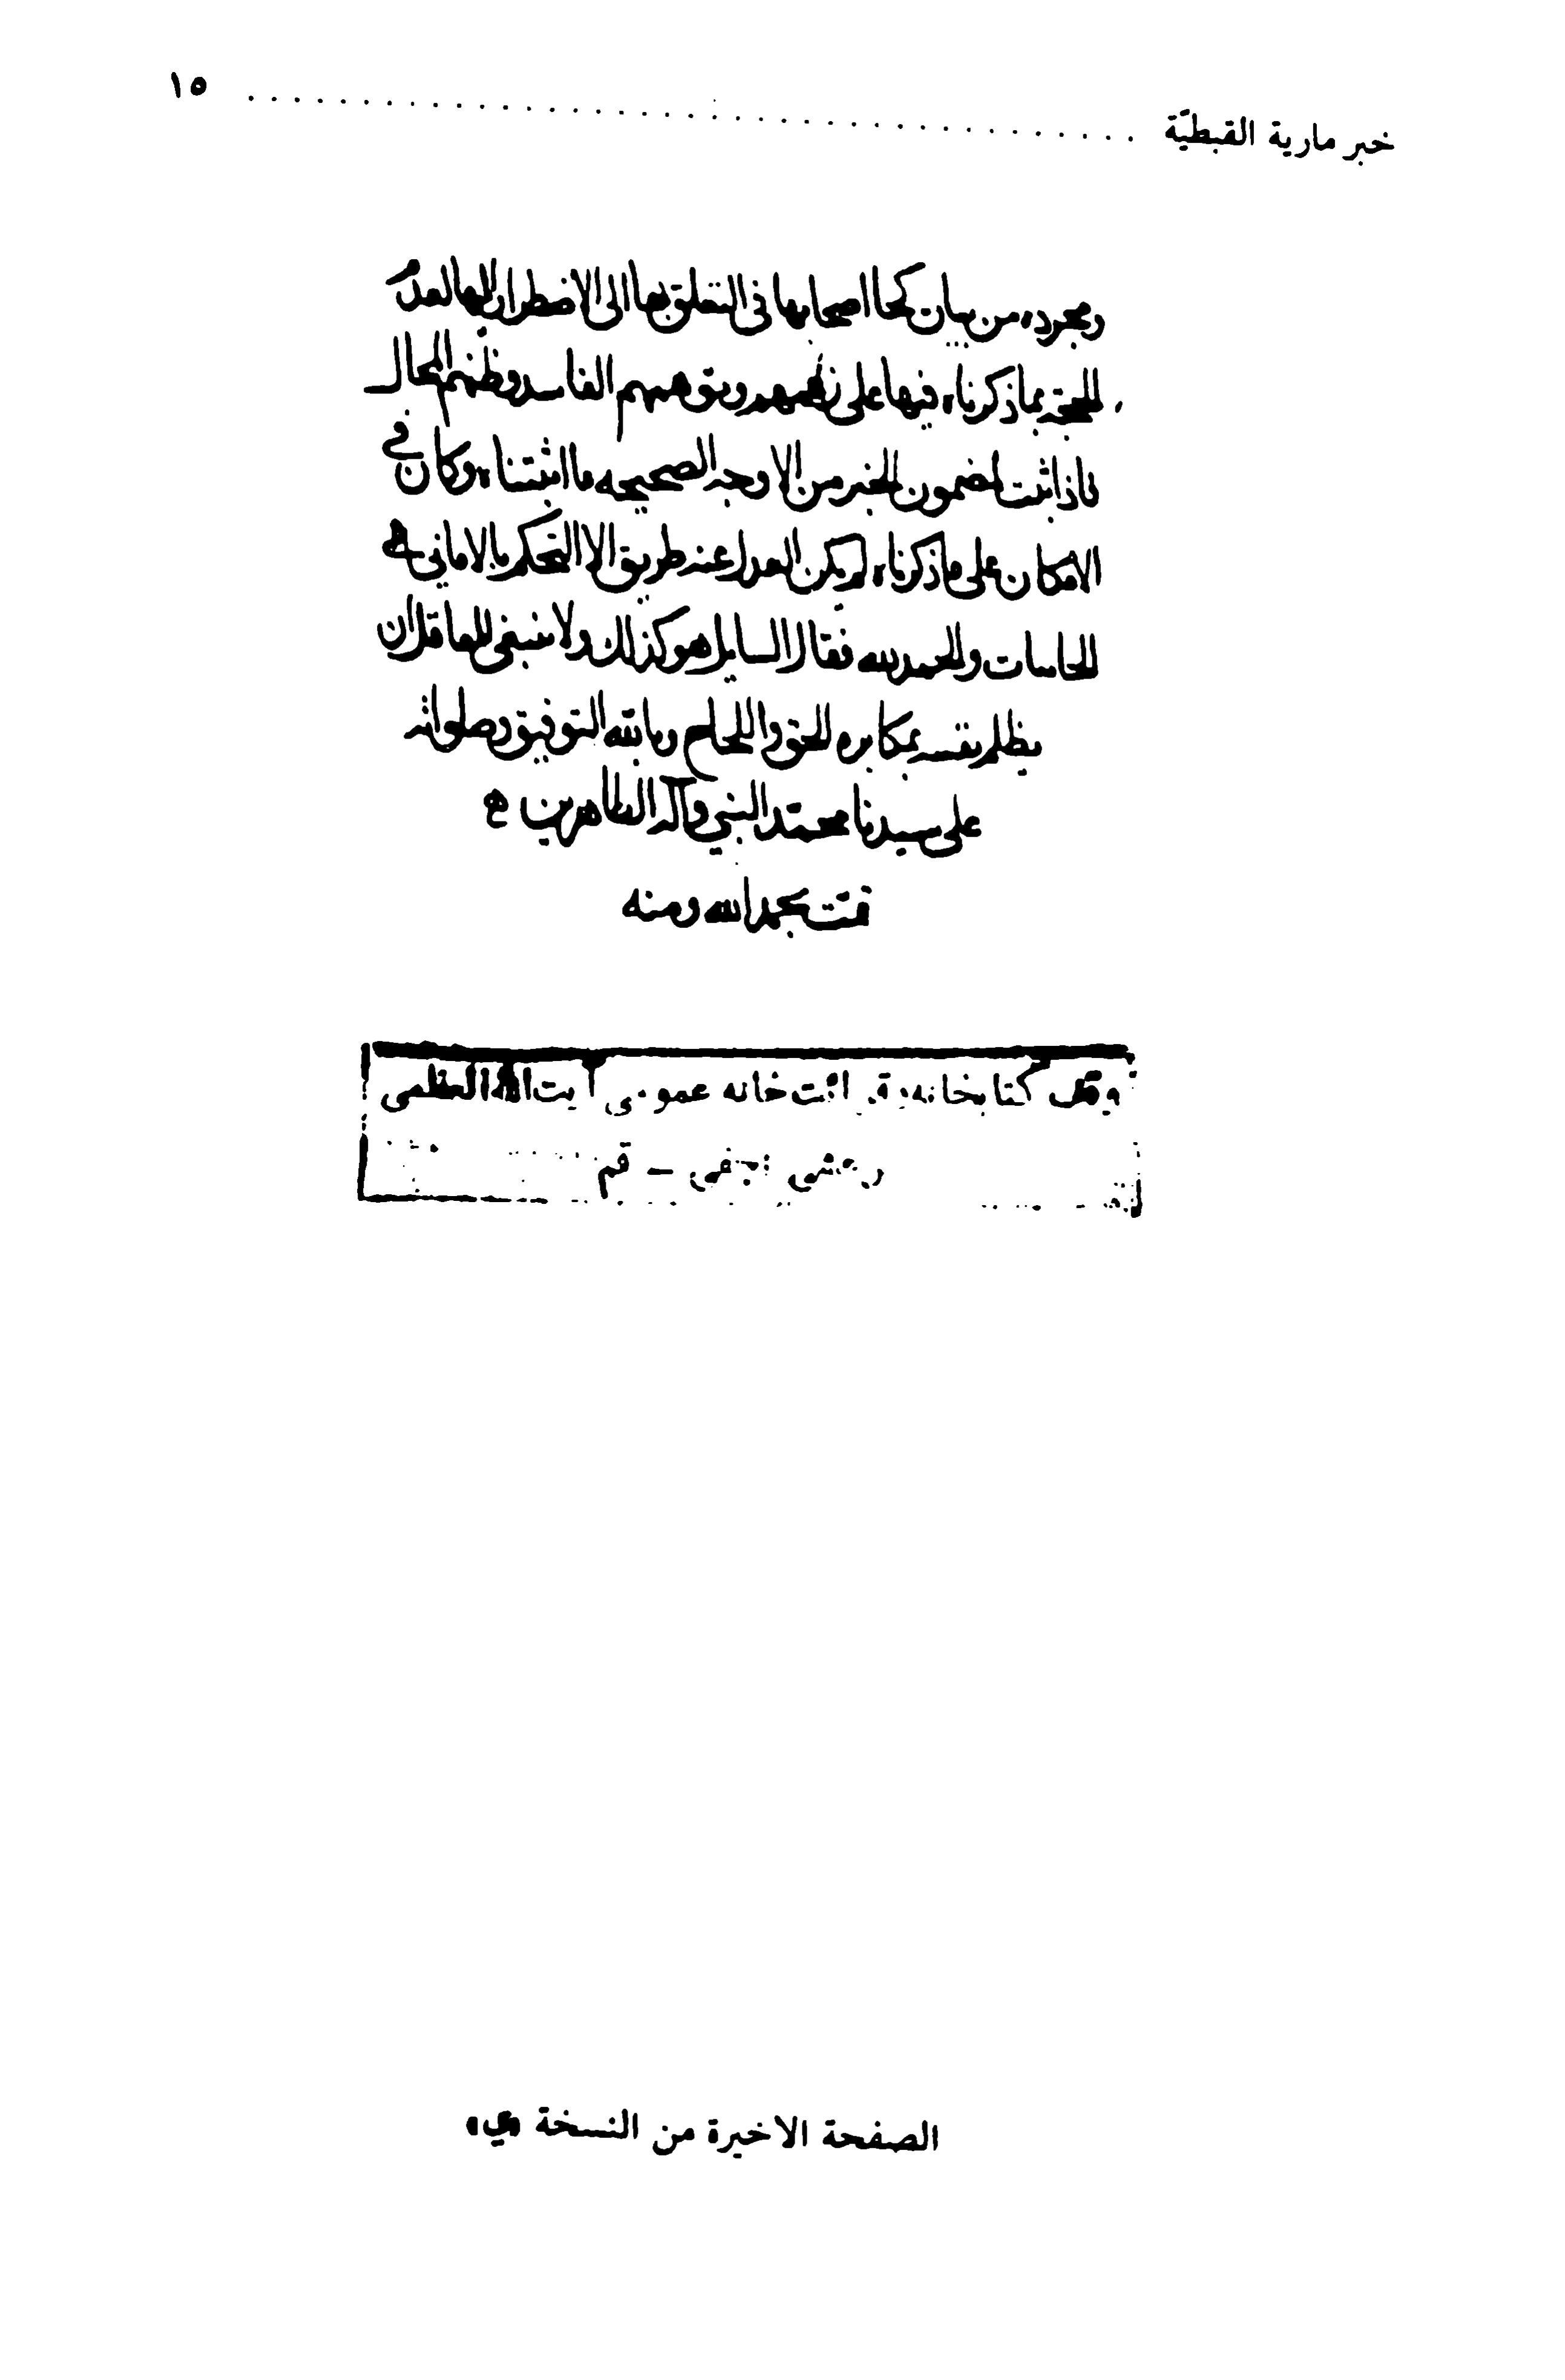 خبر مارية القبطيّة ........................................ ١٥
من بيان اصحابها فى التعلق بها الى الاضطرار
بما ذكرناه فيها على وتوهمهم الفاسد وظنهم المحال
فاذا ثبت لمضمون الخبر من الاوجه الصحيحه ما اثبتناه وكان في
الامكان على ما ذكرناه لم يكن العدل عند طريق الا التحكم بالامانى
والحمد لله فقال السايل هو كذلك ولا ينبغى للعاقل ان
يظلم نفسه بمكابره الحق واللجاج وبالله التوفيق وصلواته
على سيدنا محمد النبي وآله الطاهرين
تمت بحمد الله ومنه
وقف كتابخانه و قرائت خانه عمومى آيت الله العظمى
مرعشى نجفى – قم
الصفحة الاخيرة من النسخة «ي»